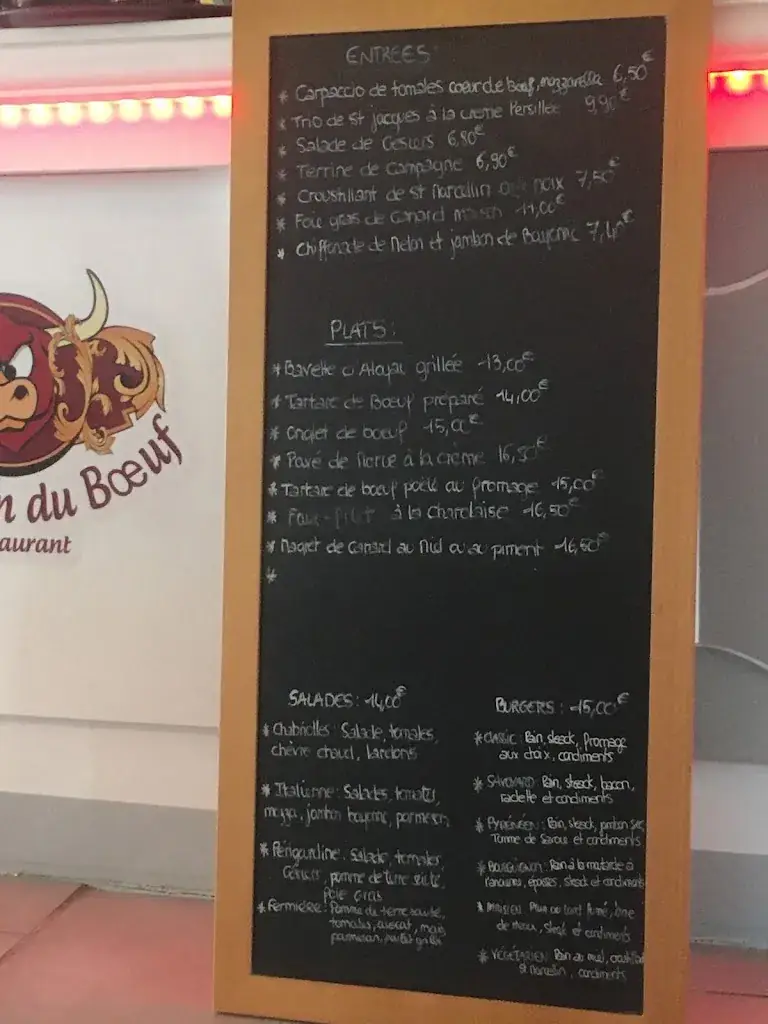 ENTREES
* Carpaccio de tomates coeur de boeuf, mozzarella 6,50€
* Trio de St jacques à la creme Persillée 9,90€
* Salade de Gesiers 6,80€
* Terrine de Campagne 6,90€
* Croustillant de St Marcellin noix 7,50€
* Foie gras de Canard maison 11,00€
* Chiffonade de Melon et jambon de Bayonne 7,40€
PLATS:
* Bavette d'Aloyau grillée 13,00€
* Tartare de Boeuf préparé 14,00€
* Onglet de boeuf 15,00€
* Pavé de à la crème 16,50€
* Tartare de boeuf poêlé au fromage 15,00€
* Faux-filet à la Charolaise 16,50€
* Magret de Canard au Miel ou au piment 16,50€
*
SALADES: 14,00€
* Salade, tomates,
chèvre chaud, lardons
* Italienne: Salades, tomates,
mozza, jambon bayonne, parmesan
* Périgourdine: Salade, tomates,
Gésiers, pomme de terre sauté,
foie gras
* Fermière: Pomme de terre sauté,
tomates, avocat, maïs,
parmesan, grillé
BURGERS: 15,00€
* CLASSIC: Pain, steack, fromage
aux choix, condiments
* SAVOYARD: Pain, steack, bacon,
raclette et condiments
* PYRÉNÉEN: Pain, steack, jambon sec,
Tomme de Savoie et condiments
* BOURGUIGNON: Pain à la moutarde à
l'ancienne, époisses, steack et condiments
* Pain au lard fumé, brie
de meaux, steak et condiments
* VÉGÉTARIEN: Pain au miel,
St Marcelin, condiments
n du Bœuf
aurant